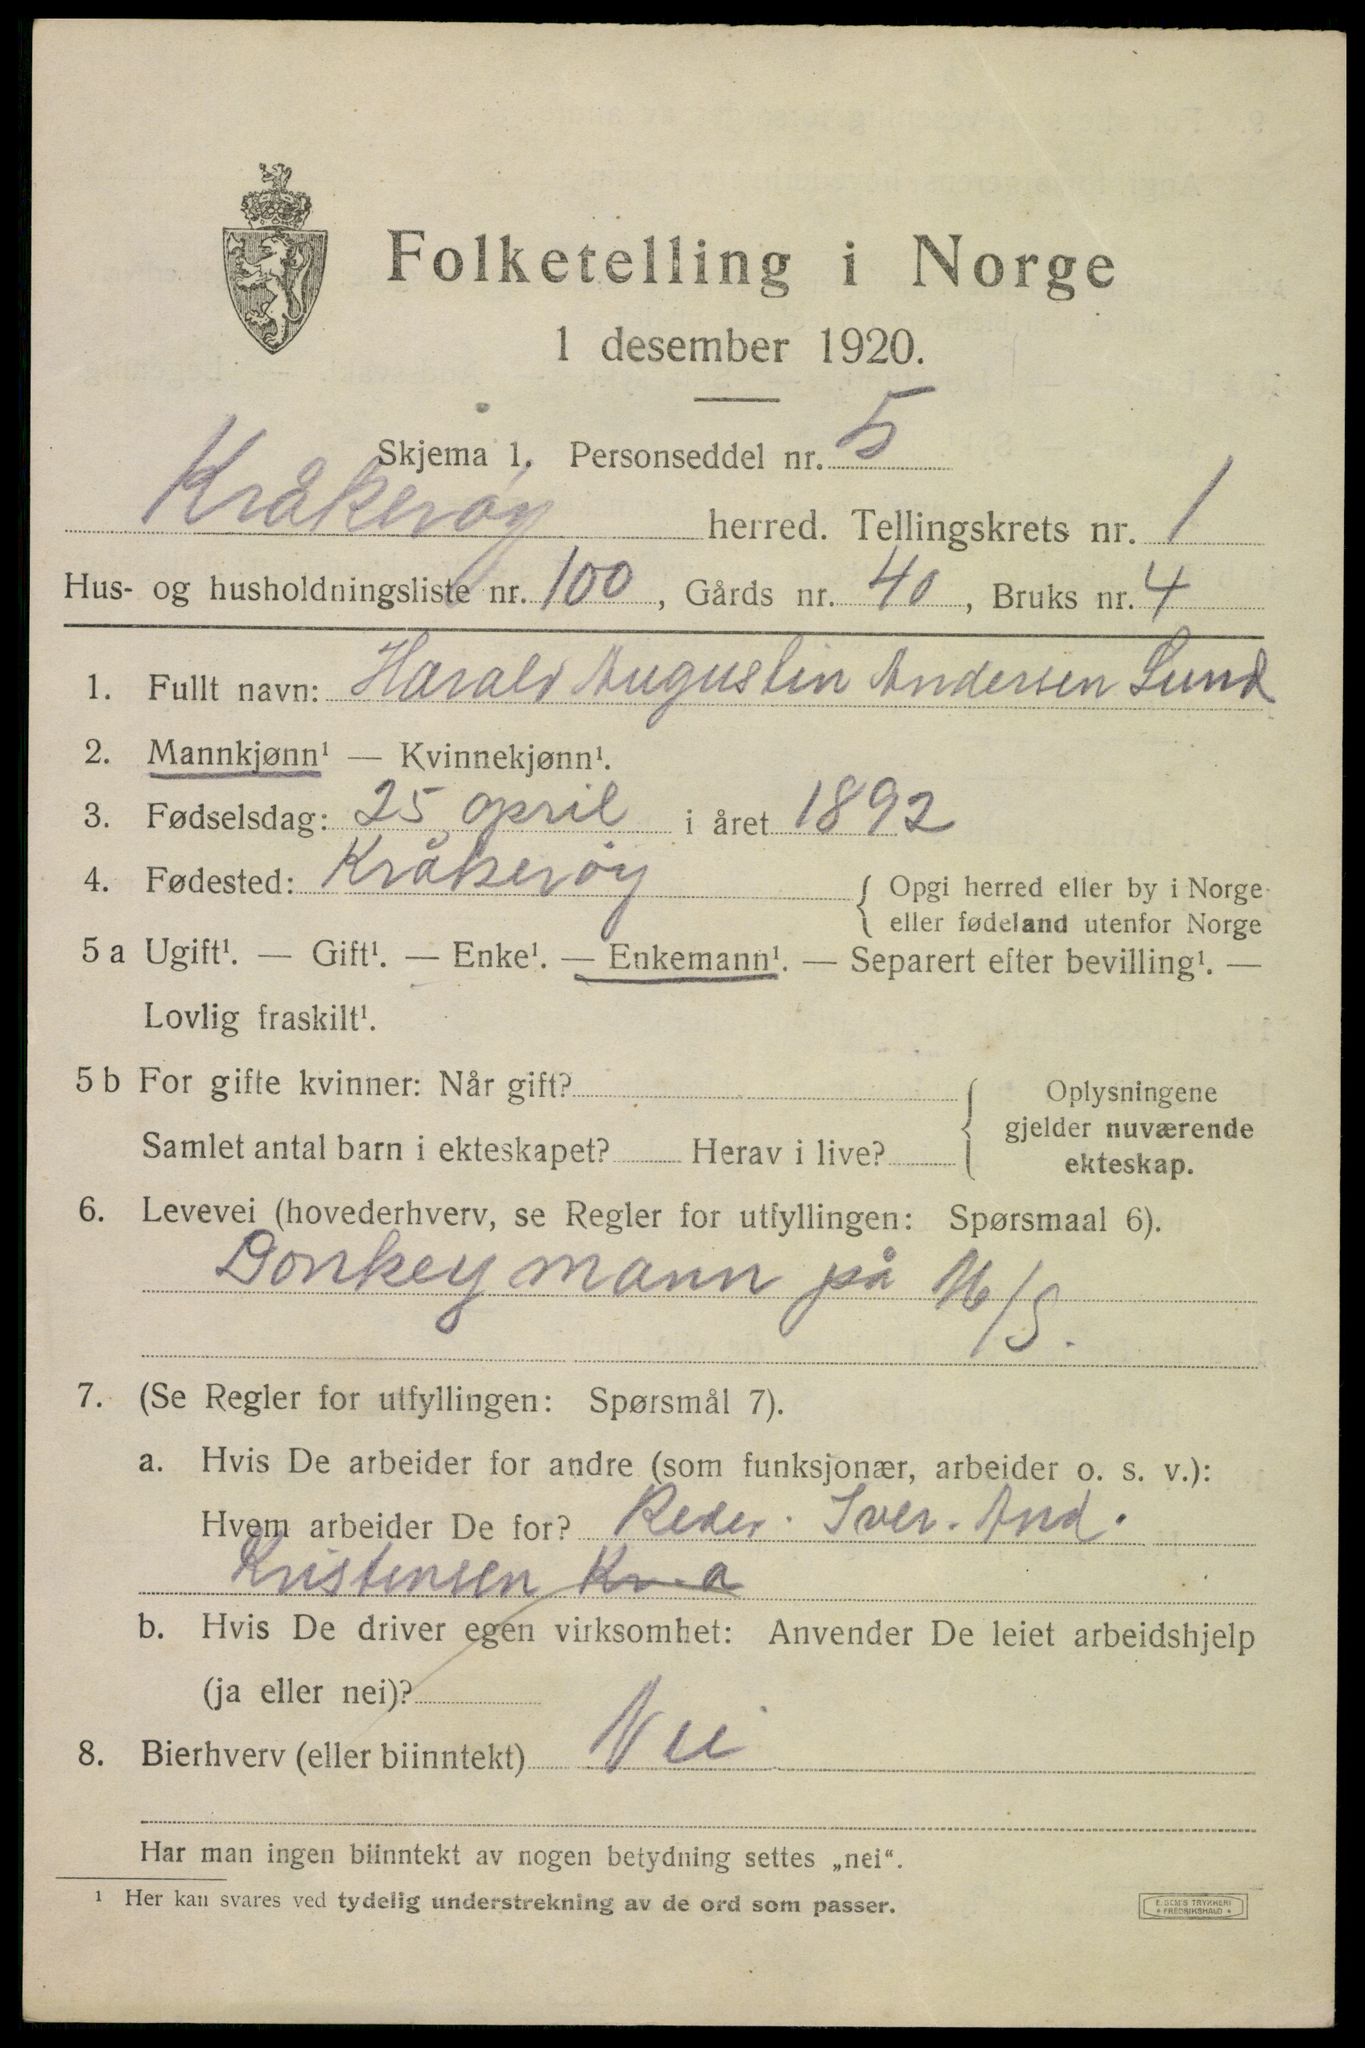 Folketelling i Norge
1 desember 1920.
Skjema 1. Personseddel nr. 5
Kråkerøy herred. Tellingskrets nr. 1
Hus- og husholdningsliste nr. 100, Gårds nr. 40, Bruks nr. 4
1. Fullt navn: Harald Augustin Andersen Lund
2. Mannkjønn¹ — Kvinnekjønn¹.
3. Fødselsdag: 25 april i året 1892
4. Fødested: Kråkerøy { Opgi herred eller by i Norge
eller fødeland utenfor Norge
5 a Ugift¹. — Gift¹. — Enke¹. — Enkemann¹. — Separert efter bevilling¹. —
Lovlig fraskilt¹.
5 b For gifte kvinner: Når gift? { Oplysningene
gjelder nuværende
Samlet antal barn i ekteskapet? Herav i live?
ekteskap.
6. Levevei (hovederhverv, se Regler for utfyllingen: Spørsmaal 6).
Donkeymann på M/S.
7. (Se Regler for utfyllingen: Spørsmål 7).
a. Hvis De arbeider for andre (som funksjonær, arbeider o. s. v.):
Hvem arbeider De for? Reder. Iver. And.
Kristensen
b. Hvis De driver egen virksomhet: Anvender De leiet arbeidshjelp
(ja eller nei)?
8. Bierhverv (eller biinntekt) Nei
Har man ingen biinntekt av nogen betydning settes „nei“.
¹ Her kan svares ved tydelig understrekning av de ord som passer.
E. SEM'S TRYKKERI
* FREDRIKSHALD *